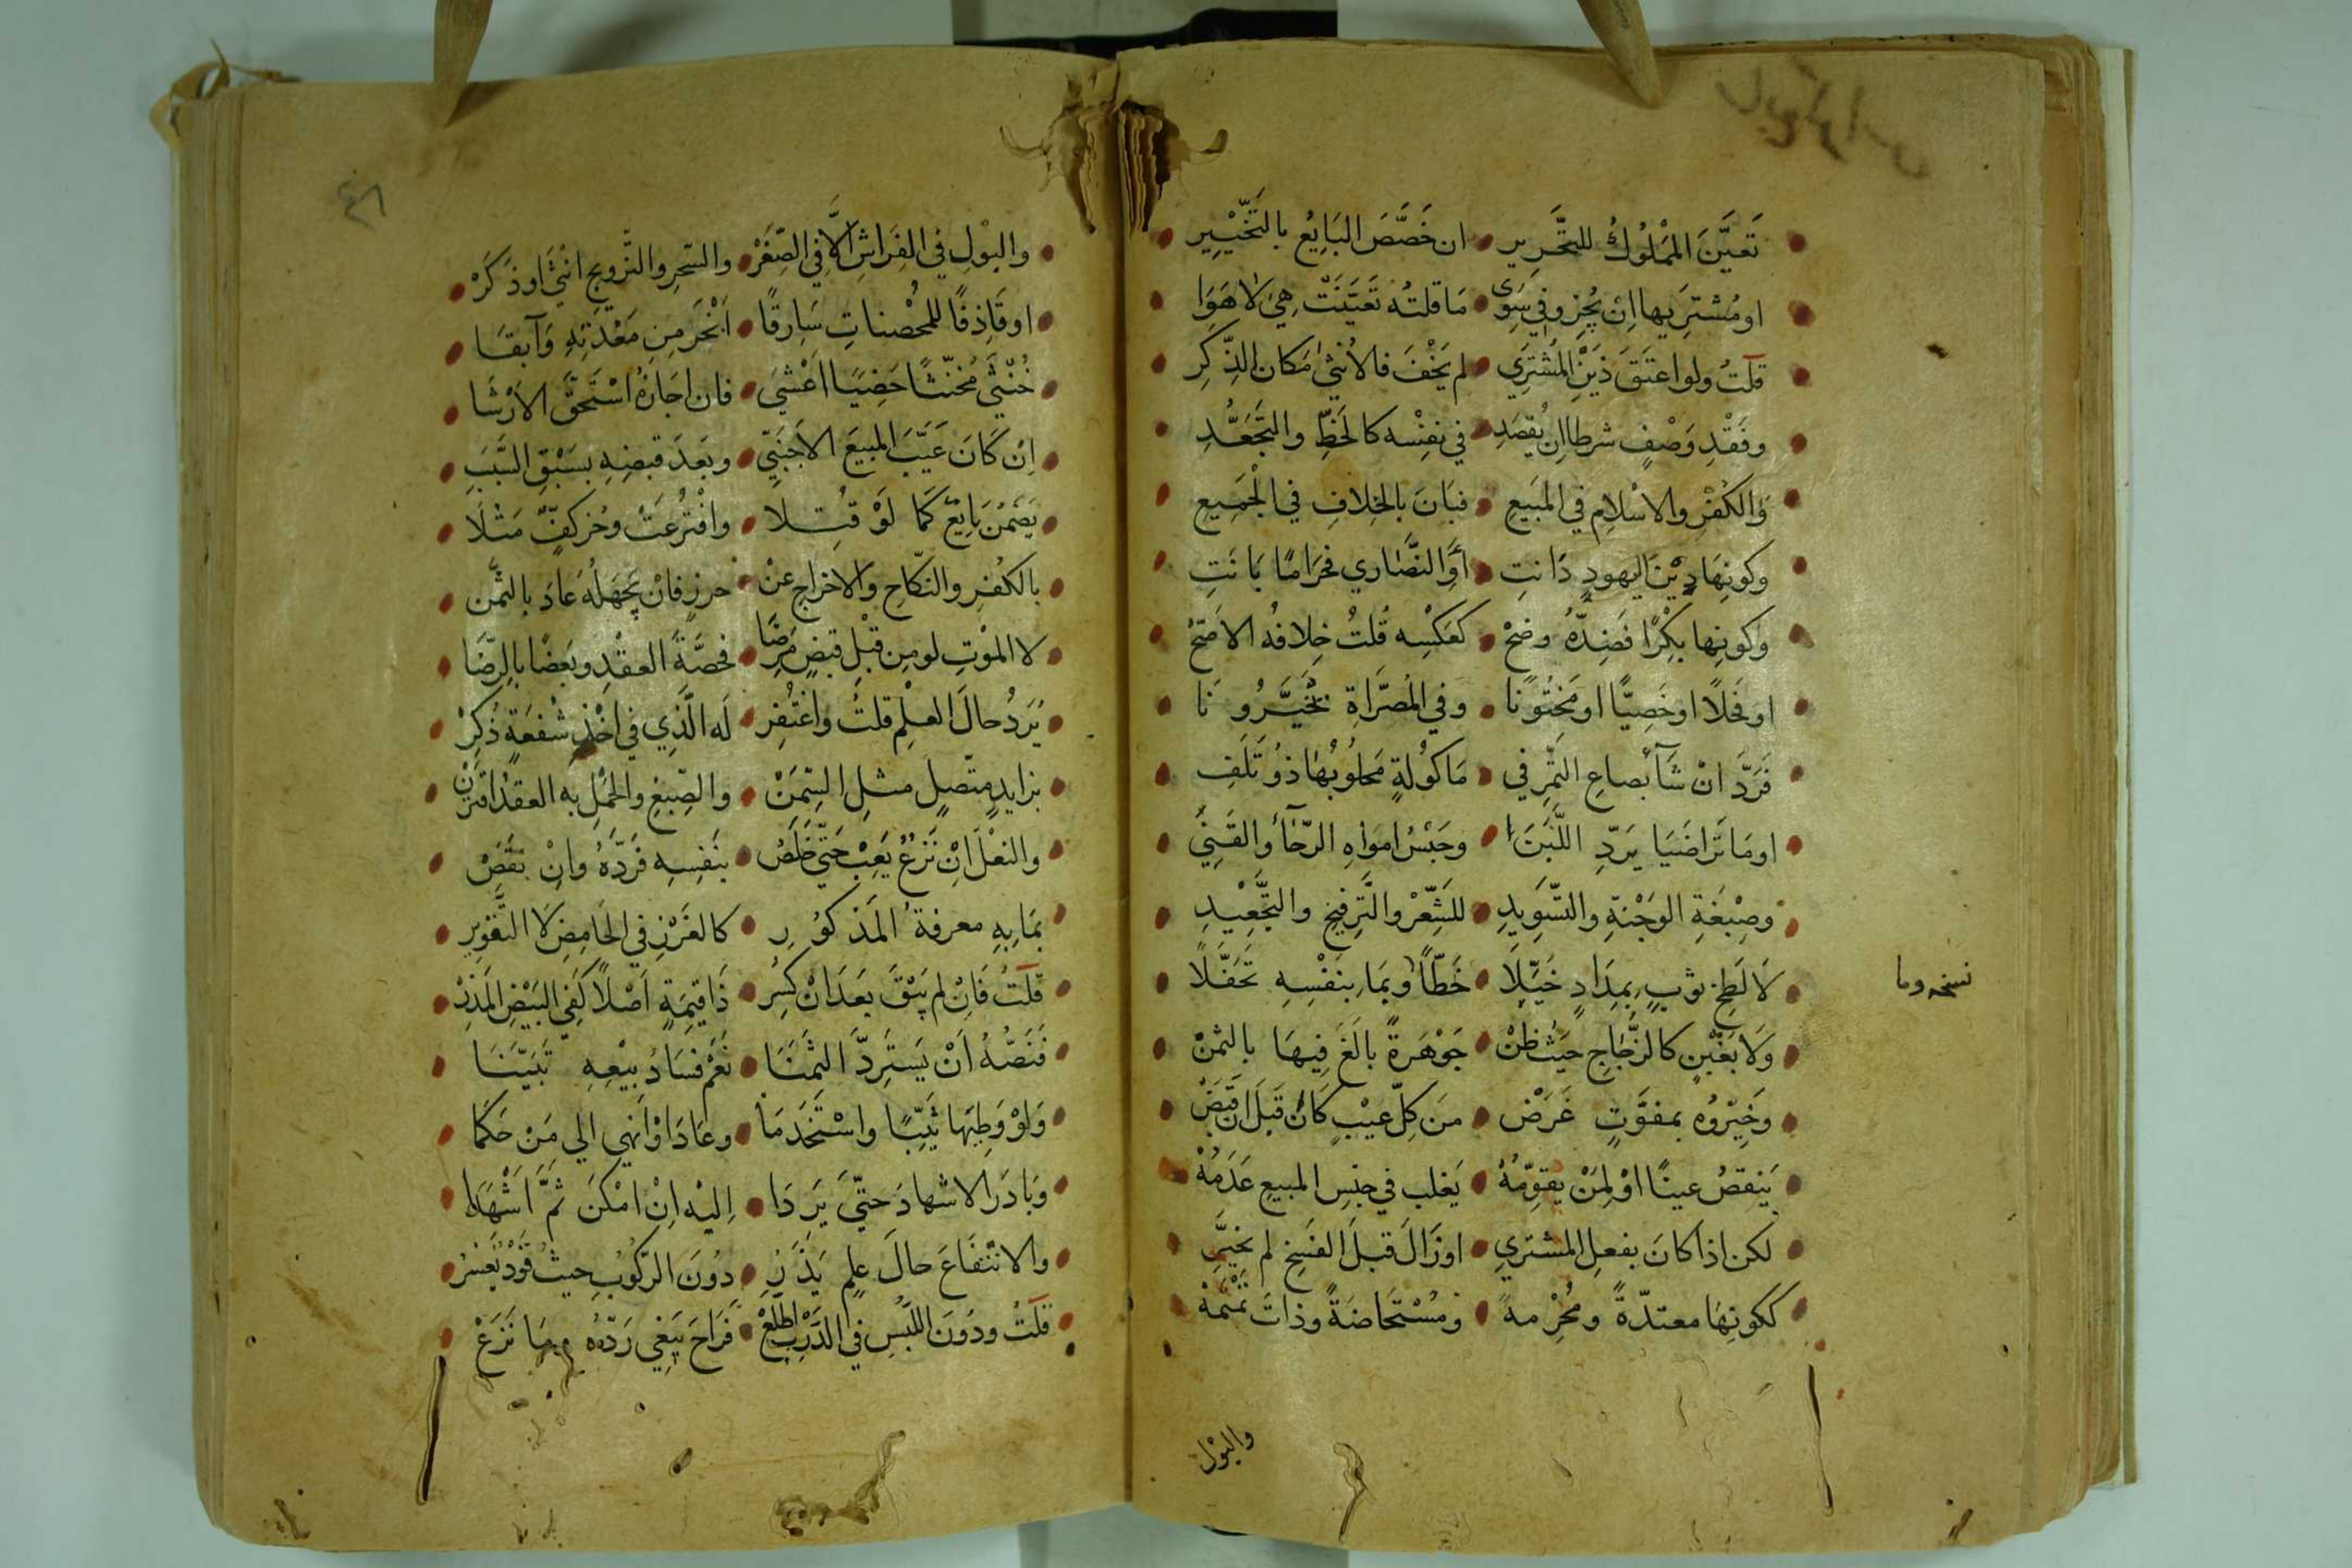 تَعَيَّنَ المَمْلُوكُ للتَّحْرِيرِ • ان خَصَّصَ البَايِعُ بالتَّخْيِيرِ
او مُشترِيها اِنْ يُجِزْ وفي سِوَى • مَا قلتُه تَعَيَّنَتْ هِيْ لا هَوَا
قلتُ ولو اعتَقَ ذَيْنِ المُشتَرِي • لم يَخْفَ فالأنثى مَكان الذَّكَرِ
وفَقْدِ وَصْفٍ شرطا اِن يُقصَدِ • في نفْسِه كالخَطِّ والتَّجَعُّدِ
وَالكُفْرِ والاسْلامِ في المَبيعِ • فبَانَ بالخِلافِ في الجَمِيعِ
وكونِهَا دِيْنَ اليهودِ دَانتِ • أوِ النَّصَارى فحَرَامًا بَانَتِ
وكونِها بِكْرًا فَضِدُّهُ وضحْ • كعَكْسِه قُلتُ خِلافُه الاصَحْ
او فَحْلًا او خَصِيًّا او مَخْتُونًا • وفي المُصَرَّاةِ يُخَيَّرُونَا
فَرَدَّ انْ شَآ بصاعِ التمْرِ في • مَاكُولةٍ مَحلُوبُهَا ذُو تَلَفِ
او مَا تَراضَيَا يَرَدِّ اللَّبَنَا • وحَبْسُ امواهِ الرَّحَا والقَنِيْ
وصِبْغَةِ الوَجْنةِ والتَّسْوِيدِ • للشَّعْرِ والتَّرفيخِ والتَّجْعِيْدِ
لَا لَطخِ ثوبٍ بِمِدَادٍ خَيَّلَا • خَطّاً وبمَا بنَفْسِهِ تحَفَّلَا
نسخه وما
وَلَا بغَبْنٍ كالزُّجَاجِ حيثُ ظنْ • جَوْهَرةً بالَغَ فِيهَا بالثمنْ
وَخَيّرُوه بمفوَّتٍ غَرَضْ • مَن كلِّ عيْبٍ كَانَ قبلَ ان قَبَضْ
يَنقصُ عينًا اوْ لِمَنْ يقوِّمُهْ • يَغلب في جنْسِ المبيعِ عَدَمُهْ
لكن اذا كانَ بفعلِ المشتري • او زَالَ قبلَ الفَسْخِ لم يُخَيَّرِ
ككونِهَا معتدّةً ومُحْرِمهْ • ومُسْتَحَاضَةً وذاتَ تَمْتَمهْ
والبوْل
والبوْلِ في الفِرَاشِ الَّا في الصِّغَرْ • والسِّحرِ والتَّزويجِ انثَى او ذَكَرْ
او قَاذِفًا للمُحْصناتِ سَارِقًا • ابْخَرَ مِن مَعْدَتِهِ وَآبِقَا
خُنْثَى مُخنّثًا خَصِيًا اعْشَى • فان اجَازهُ اسْتَحَقَّ الارْشَا
اِن كَانَ عَيَّبَ المبيعَ الاجنَبِي • وبَعدَ قبضِهِ بسَبْقِ السَّبَبِ
يَضمَنُ بَايِعٌ كَمَا لَوْ قُتِلا • وافتُرعَتْ وحُزَّ كفٌّ مَثْلَا
بالكُفرِ والنكاحِ والاخراجِ عنْ • حرزٍ فانْ يجهَلْهُ عَادَ بالثمن
لا الموْتِ لو مِن قبْلِ قبضٍ مَرِضَا • فحصَّةَ العقْدِ وبَعضًا بالرِّضَا
يُرَدُّ حالَ العلْمِ قلتُ واغتُفِر • لَه الَّذِي في اخْذِ شفعةٍ ذُكِرْ
بزايدٍ متّصلٍ مثلِ السِّمَنْ • والصِّبغِ والحَمْلِ به العقدُ اقترَنْ
والنعْلَ انْ نَزْعٌ يَعِبْ حتّى خَلَصْ • بنَفسِهِ فَردَّهُ واِنْ نَقَصْ
بمَا بِهِ معرفةُ المَذْكُورِ • كالغَرْزِ في الحَامِضِ لَا التَّقوِيرِ
قلتُ فَاِنْ لم يَبْقَ بعدَ انْ كُسِر • ذَا قيمَةٍ اَصْلًا كَفي البَيْضِ المَذِرْ
فَنَصُّهُ اَنْ يَستَرِدَّ الثمَنَا • نَعَمْ فسَادُ بيْعِهِ تبَيَّنَا
وَلوْ وَطِيهَا ثيّبًا واسْتَخدَمَا • وعَادَ او اَنْهى الى مَن حَكَمَا
وبَادَرَ الاشهادَ حتَّى يَرَدَا • اِليْه اِنْ امْكنَ ثمَّ اشْهَدَا
والانْتفَاعَ حالَ علمٍ يَذَرِ • دُونَ الرُّكُوبِ حيثُ قوْدٌ يَعْسُرُ
قلتُ ودُونَ اللّبْسِ في الدَّرْبِ اطَّلَعْ • فَرَاحَ يَبغِي رَدَّهُ وما نَزَعْ